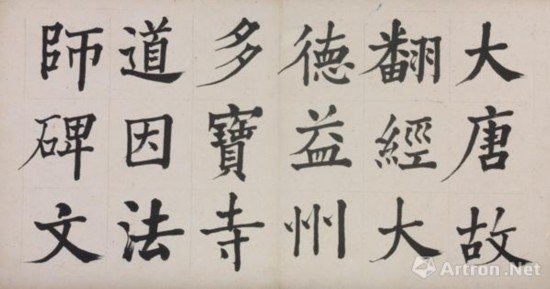 大唐故
翻經大
德益州
多寶寺
道因法
師碑文
Artron.Net